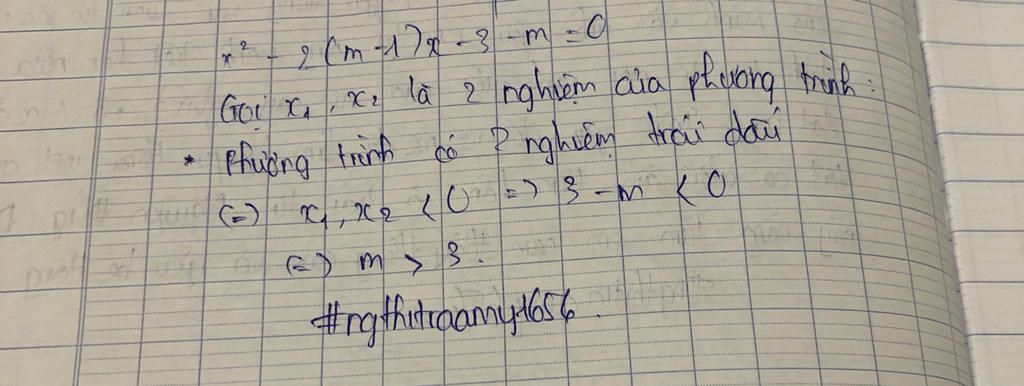 x² - 2(m-1)x - 3 - m = 0
Gọi x₁, x₂ là 2 nghiệm của phương trình:
* Phương trình có 2 nghiệm trái dấu
(=) x₁, x₂ < 0 => 3 - m < 0
(=) m > 3.
#ngthitraamy1656.